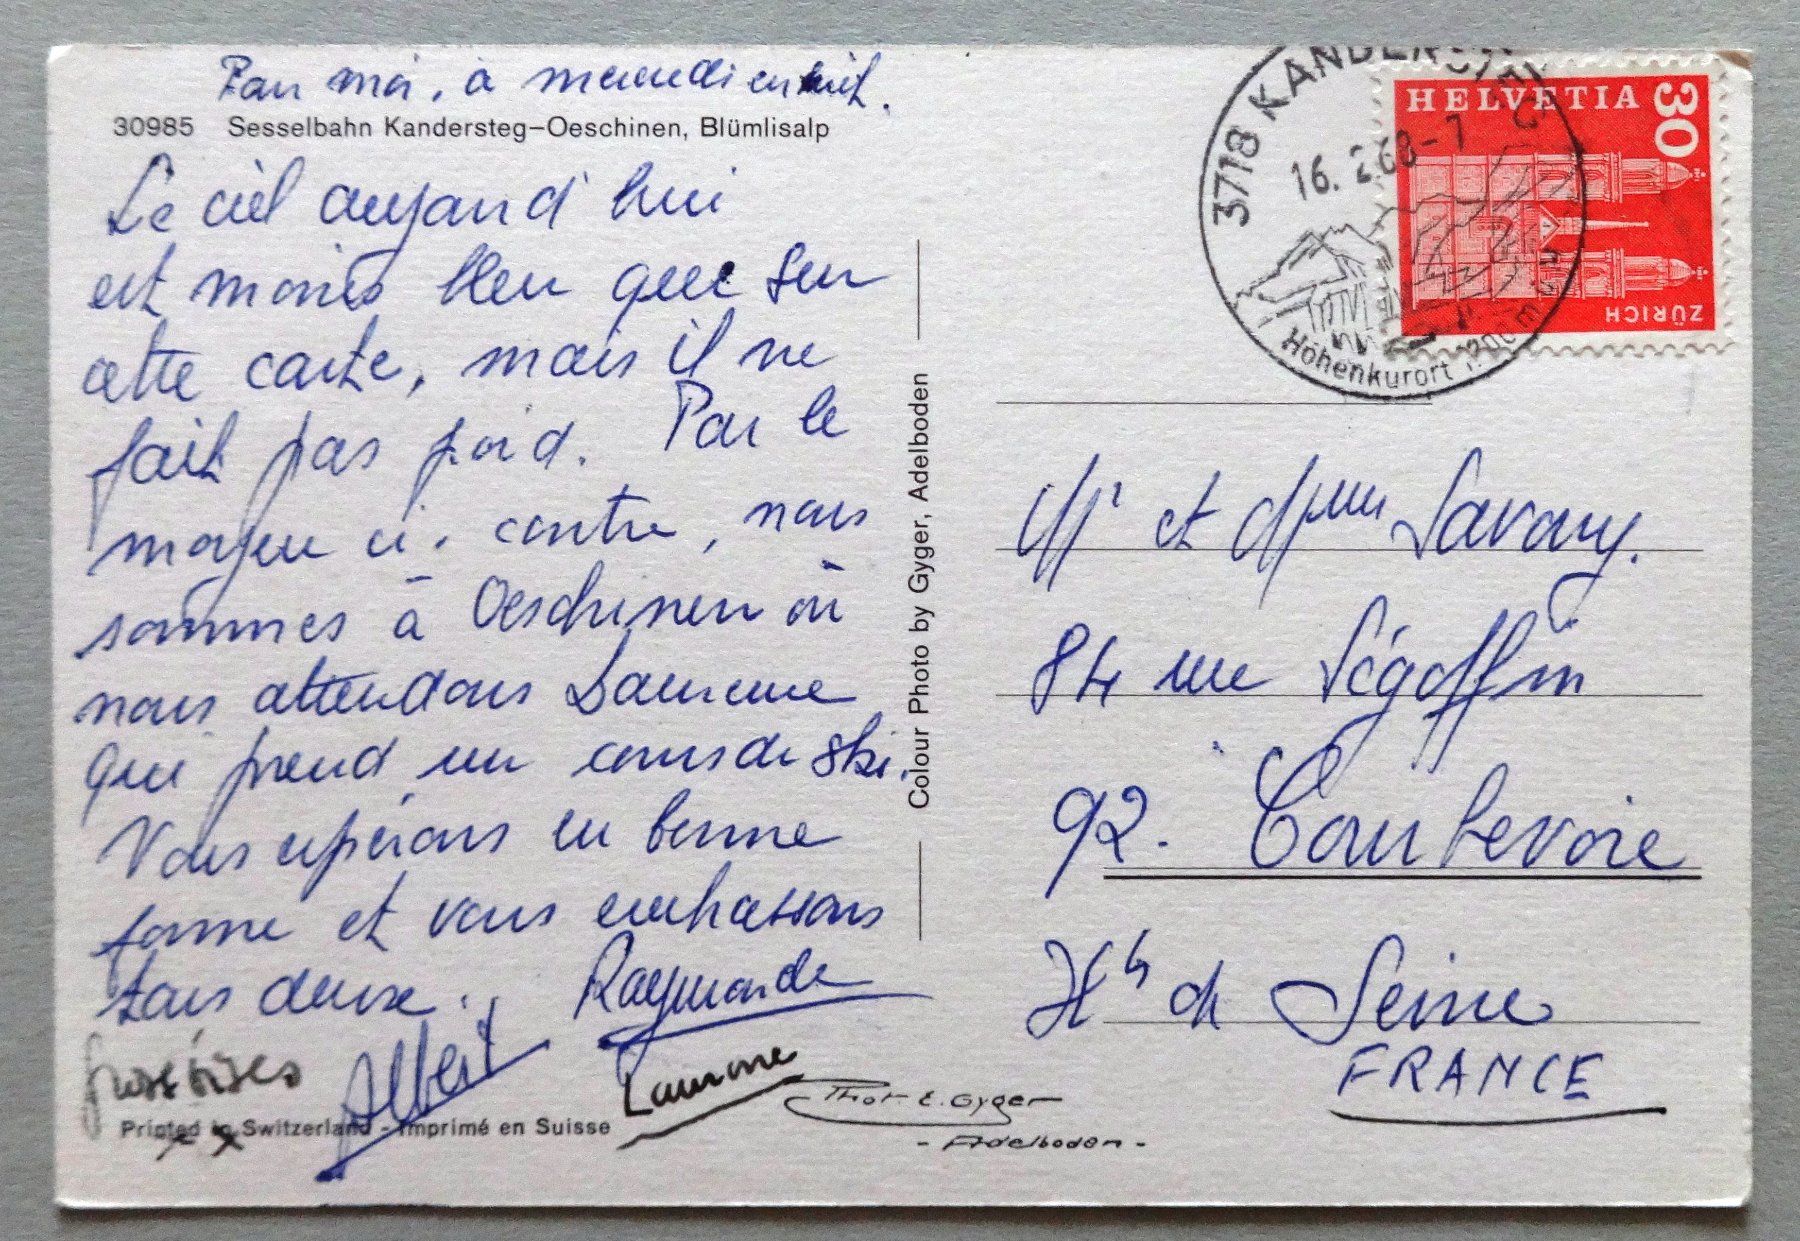 Pour moi, à
30985 Sesselbahn Kandersteg–Oeschinen, Blümlisalp
Le ciel aujourd'hui
est moins bleu que sur
cette carte, mais il ne
fait pas froid. Par le
moyen ci-contre, nous
sommes à Oeschinen où
nous attendons Laurence
qui prend un cours de ski.
Vous espérons en bonne
forme et vous embrassons
tous deux.
Raymonde
Albert
Laurence
grosses bises
x x
Printed in Switzerland - Imprimé en Suisse
Phot. E. Gyger
- Adelboden -
Colour Photo by Gyger, Adelboden
3718 KANDERSTEG
16. 2.68-7
Höhenkurort
HELVETIA
30
ZÜRICH
Mr et Mme Savary.
84 rue Ségoffin
92. Courbevoie
Hts de Seine
FRANCE